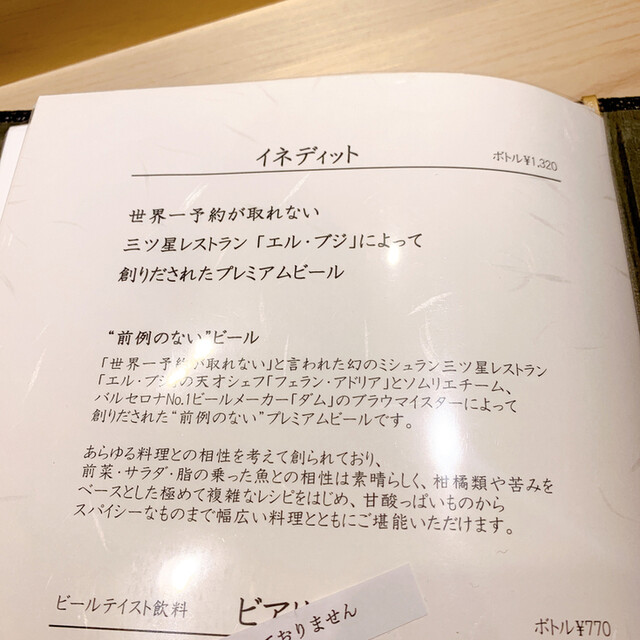 イネディット ボトル¥1,320
世界一予約が取れない
三ツ星レストラン「エル・ブジ」によって
創りだされたプレミアムビール
“前例のない”ビール
「世界一予約が取れない」と言われた幻のミシュラン三ツ星レストラン
「エル・ブジ」の天才シェフ「フェラン・アドリア」とソムリエチーム、
バルセロナNo.1ビールメーカー「ダム」のブラウマイスターによって
創りだされた“前例のない”プレミアムビールです。
あらゆる料理との相性を考えて創られており、
前菜・サラダ・脂の乗った魚との相性は素晴らしく、柑橘類や苦みを
ベースとした極めて複雑なレシピをはじめ、甘酸っぱいものから
スパイシーなものまで幅広い料理とともにご堪能いただけます。
ビールテイスト飲料 ボトル¥770
ておりません